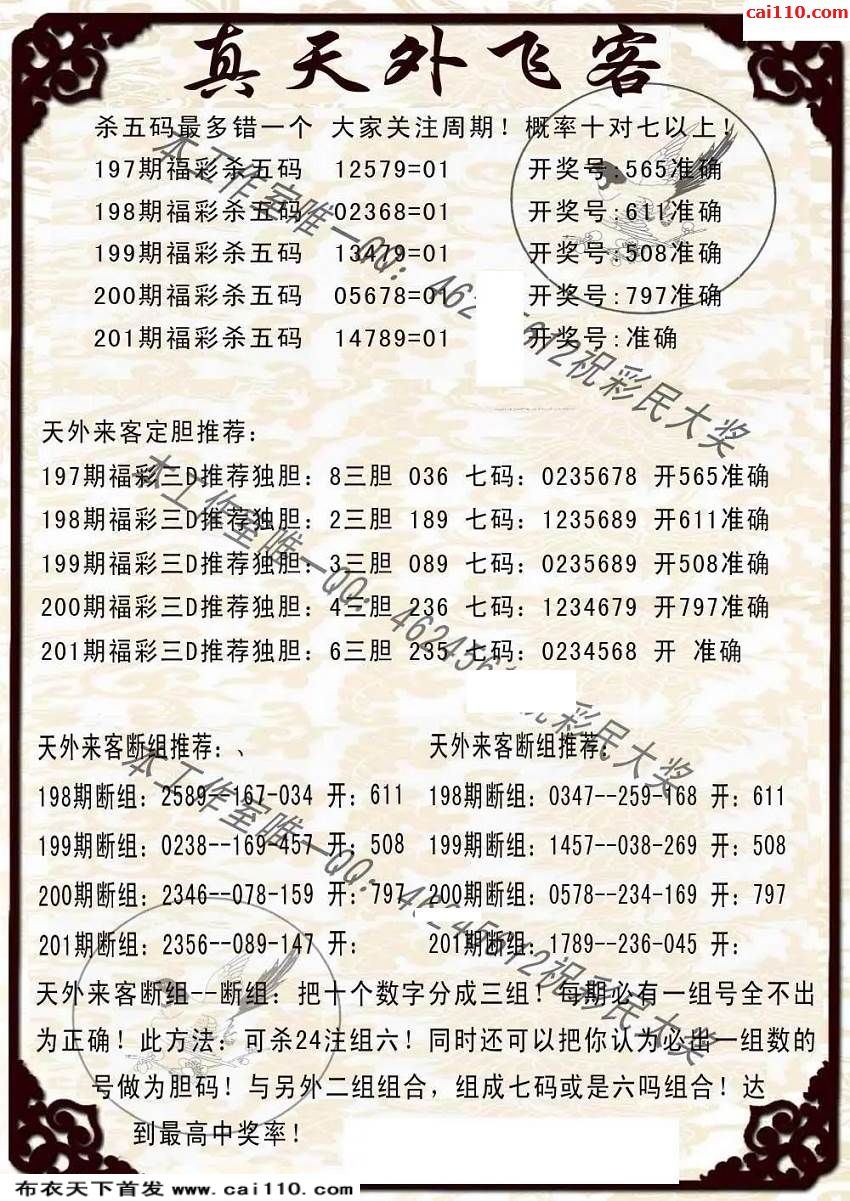 cai110.com
真天外飞客
杀五码最多错一个 大家关注周期！概率十对七以上！
197期福彩杀五码 12579=01 开奖号:565准确
198期福彩杀五码 02368=01 开奖号:611准确
199期福彩杀五码 13479=01 开奖号:508准确
200期福彩杀五码 05678=01 开奖号:797准确
201期福彩杀五码 14789=01 开奖号:准确
天外来客定胆推荐：
197期福彩三D推荐独胆：8三胆 036 七码：0235678 开565准确
198期福彩三D推荐独胆：2三胆 189 七码：1235689 开611准确
199期福彩三D推荐独胆：3三胆 089 七码：0235689 开508准确
200期福彩三D推荐独胆：4三胆 236 七码：1234679 开797准确
201期福彩三D推荐独胆：6三胆 235 七码：0234568 开 准确
天外来客断组推荐：、
198期断组：2589--167-034 开：611
199期断组：0238--169-457 开：508
200期断组：2346--078-159 开：797
201期断组：2356--089-147 开：
天外来客断组推荐：
198期断组：0347--259-168 开：611
199期断组：1457--038-269 开：508
200期断组：0578--234-169 开：797
201期断组：1789--236-045 开：
天外来客断组--断组：把十个数字分成三组！每期必有一组号全不出
为正确！此方法：可杀24注组六！同时还可以把你认为必出一组数的
号做为胆码！与另外二组组合，组成七码或是六吗组合！达
到最高中奖率！
本工作室唯一QQ：462
祝彩民大奖
本工作室唯一QQ：46245
祝彩民大奖
本工作室唯一QQ：46245612祝彩民大奖
布衣天下首发 www.cai110.com